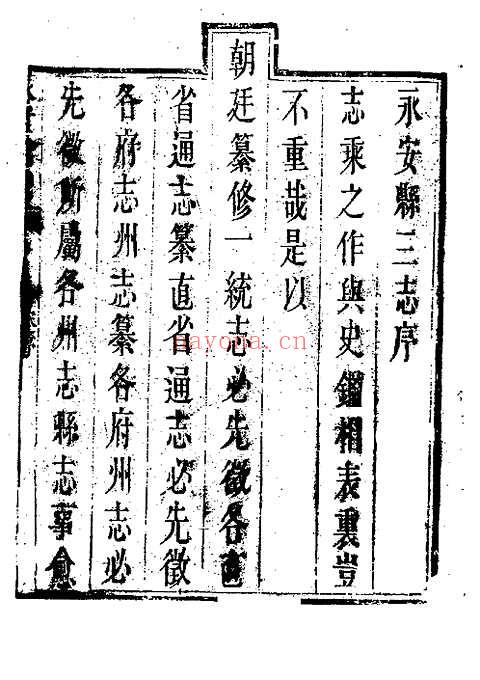 永安縣三志序
志乘之作與史鑑相表裏豈
不重哉是以
朝廷纂修一統志必先徵各直
省通志纂直省通志必先徵
各府志州志纂各府州志必
先徵所屬各州志縣志事愈
nayona.cn